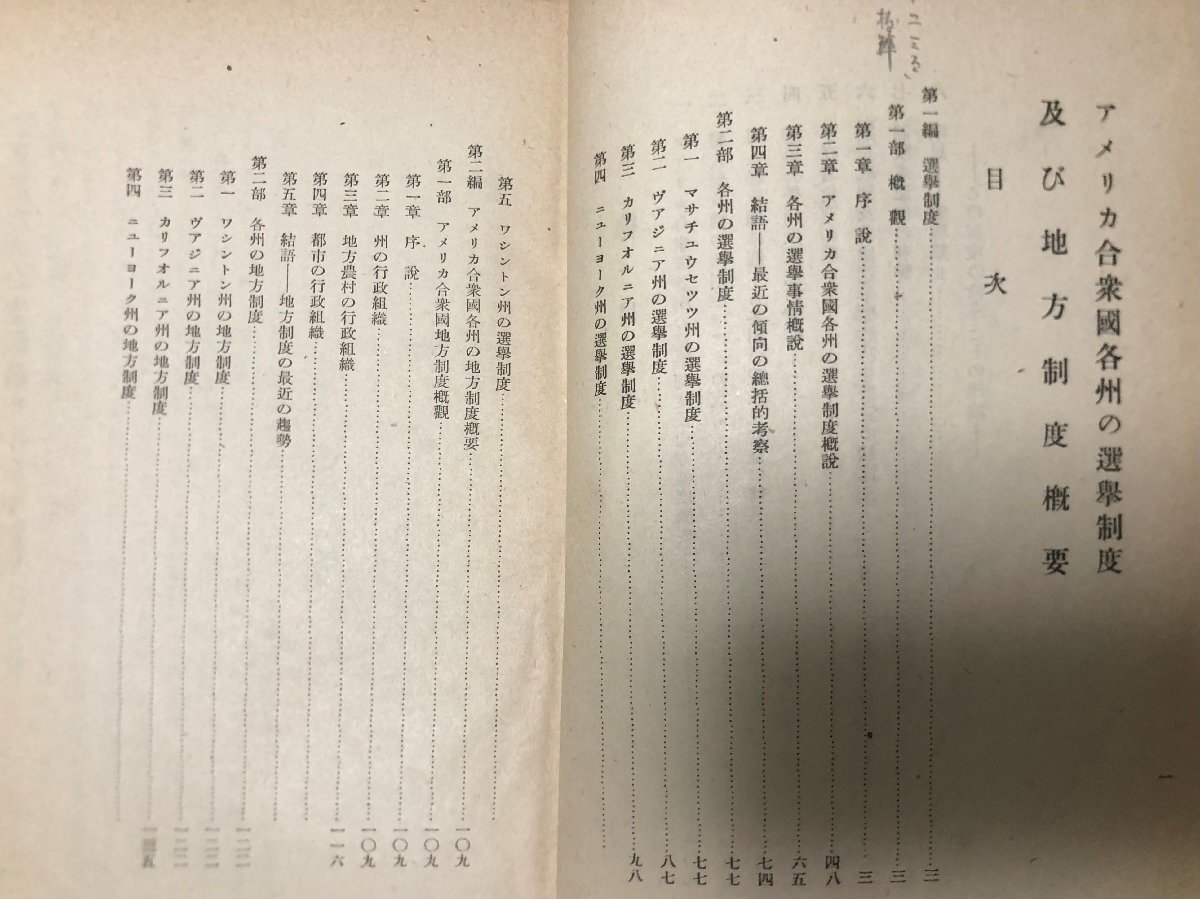 アメリカ合衆國各州の選擧制度
及び地方制度概要
目次
第一編 選擧制度……三
第一部 概觀……三
第一章 序說……三
第二章 アメリカ合衆國各州の選擧制度概說……四八
第三章 各州の選擧事情概說……六五
第四章 結語――最近の傾向の總括的考察……七四
第二部 各州の選擧制度……七七
第一 マサチュウセツツ州の選擧制度……七七
第二 ヴアジニア州の選擧制度……八七
第三 カリフオルニア州の選擧制度……九八
第四 ニューヨーク州の選擧制度……
一
第五 ワシントン州の選擧制度……
第二編 アメリカ合衆國各州の地方制度概要……一〇九
第一部 アメリカ合衆國地方制度概觀……一〇九
第一章 序說……一〇九
第二章 州の行政組織……一〇九
第三章 地方農村の行政組織……一一六
第四章 都市の行政組織……
第五章 結語――地方制度の最近の趨勢……
第二部 各州の地方制度……
第一 ワシントン州の地方制度……
第二 ヴアジニア州の地方制度……
第三 カリフオルニア州の地方制度……
第四 ニューヨーク州の地方制度……